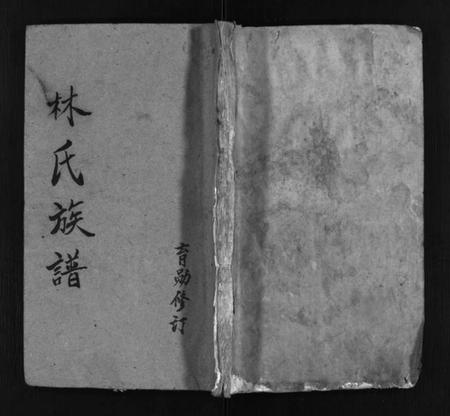 林氏族譜
育勛修訂